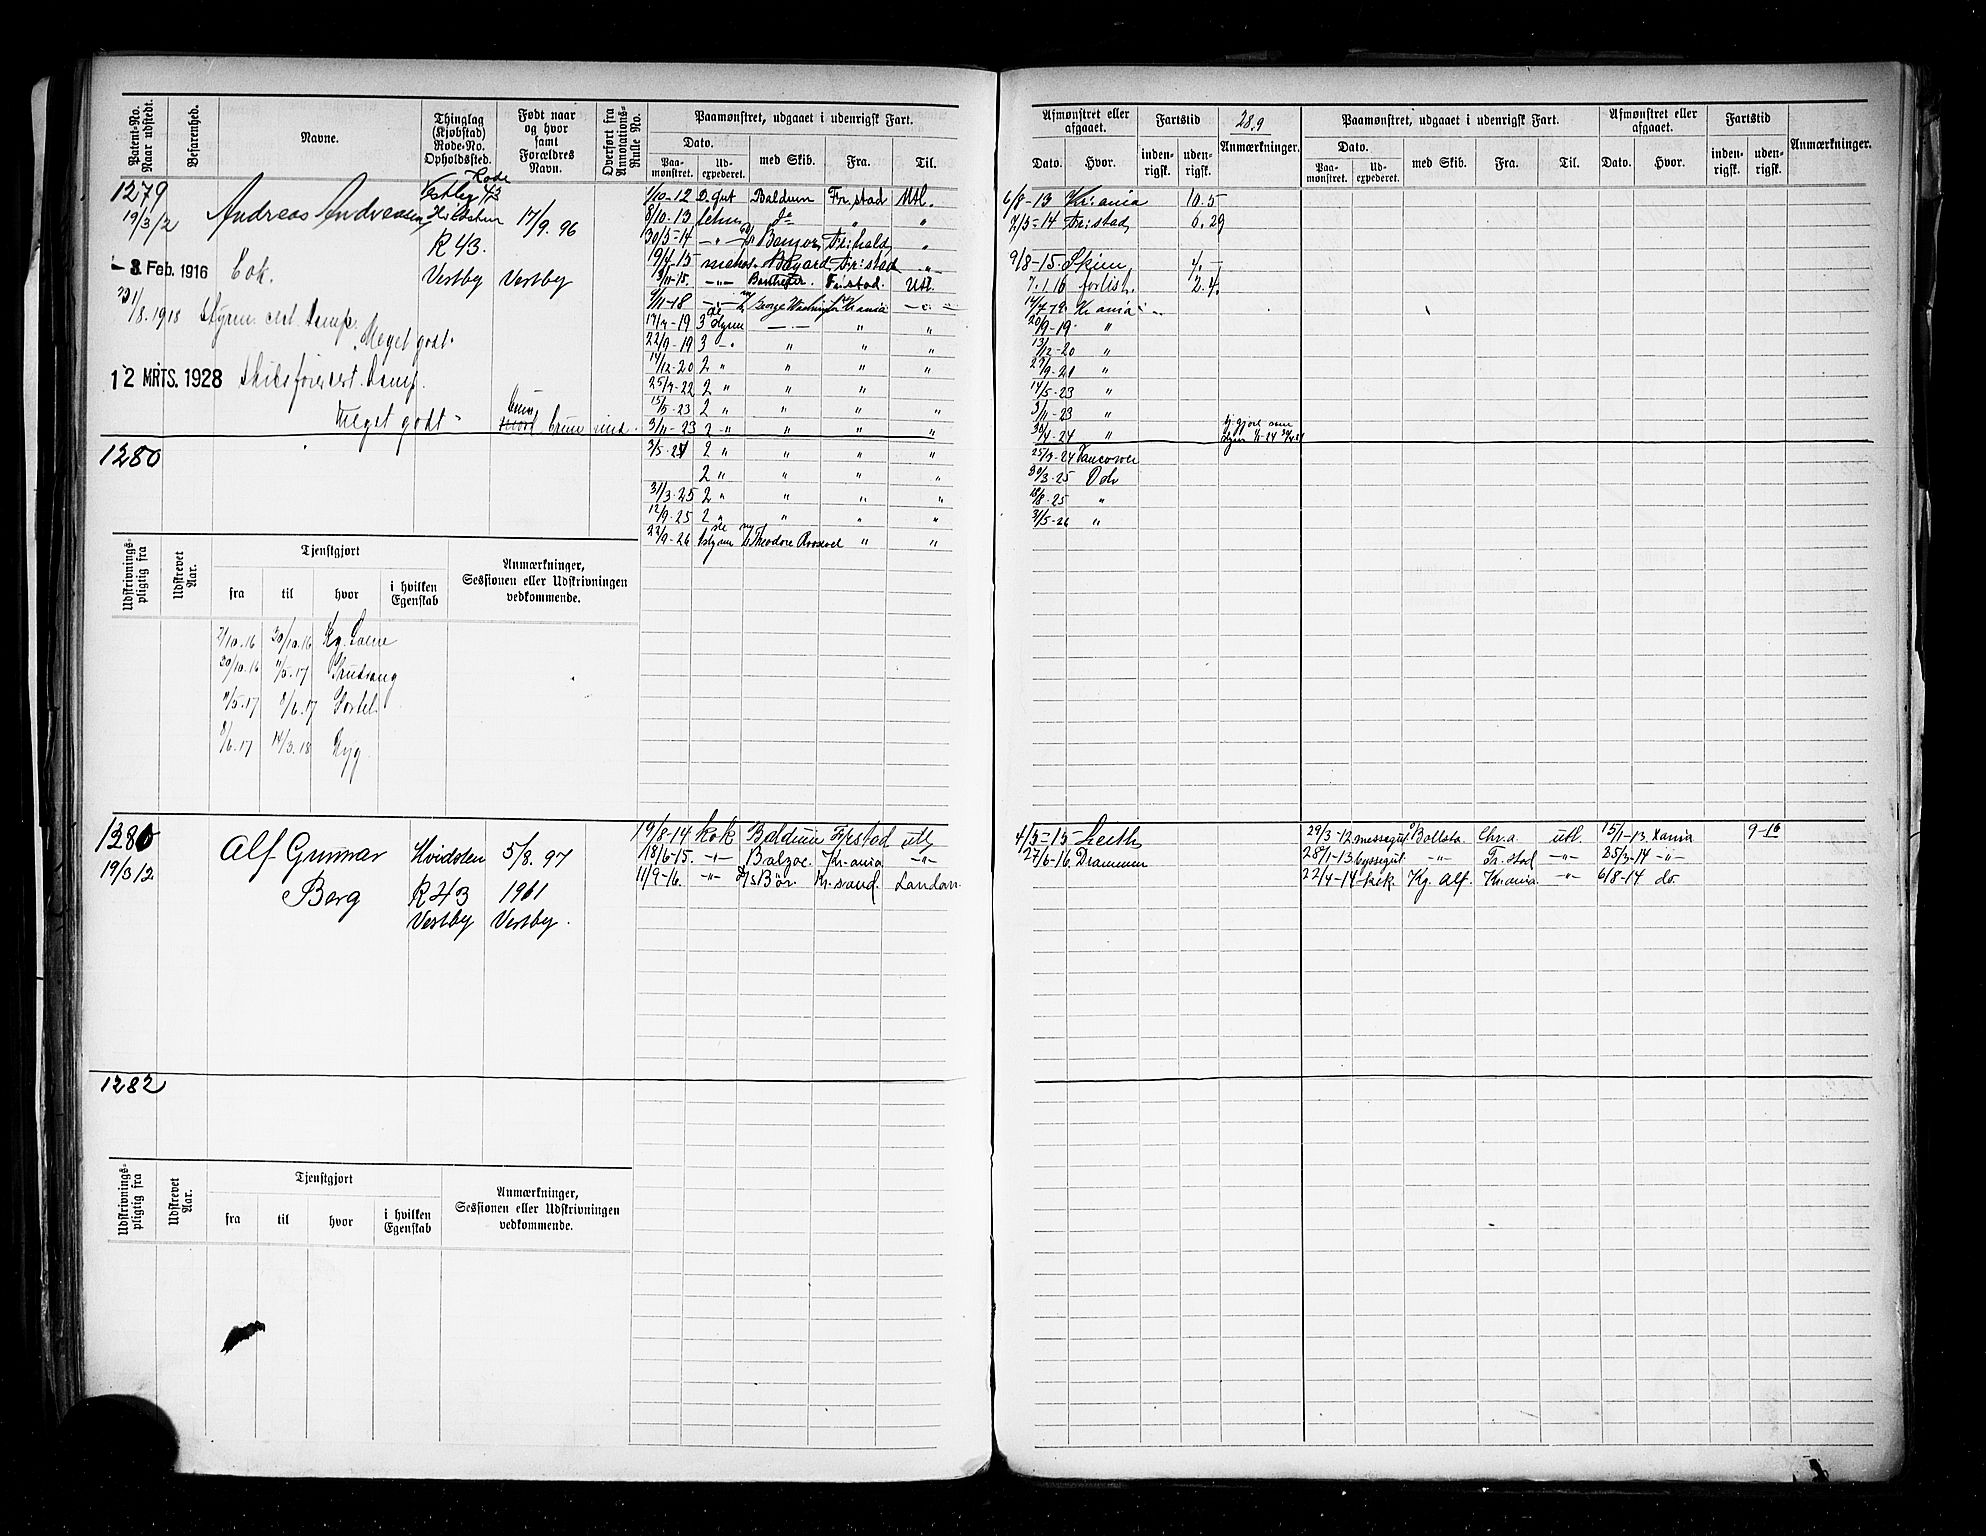 Patent-No. Naar udstedt.
Befarenhed.
Navne.
Thinglag (Kjøbstad) Rode-No. Opholdssted.
Født naar og hvor samt Forældres Navn.
Overført fra Annotations-Rulle No.
Paamønstret, udgaaet i udenrigsk Fart.
Dato.
Paa-mønstret.
Ud-expederet.
med Skib.
Fra.
Til.
1279
19/3/12
Andreas Andreassen
Vestby
Rode 43
Hvidsten
R 43.
Vestby
17/9. 96
Vestby
-3 Feb. 1916 Cok.
31/8.1918 Styrm. cert. Damp.
Meget godt.
12 MRTS. 1928 Skibsførercert. Damp.
Meget godt
1/10-12 D.gut Baldum Fr.stad Utl.
8/10-13 do " "
30/5-14 -"- Bangor Fr:hald "
19/4-15 matros Fr:stad -"-
13/11-15. -"- Fr:stad. Utl.
9/11-18 -"- George Washington Kr ania -"-
17/7-19 3 Styrm -"- " "
22/9-19 3 -"- " " "
14/12-20 2 " " " "
25/9-22 2 " " "
15/5-23 2 " " " "
3/11-23 2 " " " "
3/5-24 2 " " " "
2 " " " "
31/3-25 2 " " " "
12/9-25 2 " " " "
22/9-26 1 styrm Theodore Roosvel " "
1280
Udskrivnings-pligtig fra
Udskrevet Aar.
Tjenstgjort
fra
til
hvor
i hvilken Egenskab
Anmærkninger, Sessionen eller Udskrivningen vedkommende.
2/10.16 30/10.16
30/10.16 7/5.17
7/5.17 8/6.17
8/6.17 14/3.18
1280
19/3/12
Alf Gunnar
Berg
Hvidsten
R 43
Vestby
5/8. 97
1901
Vestby.
19/8-14 kok Baldum Fr.stad utl
18/6-15. -"- Balzac Kr.ania -"-
11/9-16. -"- D/s Bör Kr.sand. Landan
1282
Udskrivnings-pligtig fra
Udskrevet Aar.
Tjenstgjort
fra
til
hvor
i hvilken Egenskab
Anmærkninger, Sessionen eller Udskrivningen vedkommende.
Afmønstret eller afgaaet.
Dato.
Hvor.
Fartstid
inden-rigsk.
uden-rigsk.
28.9
Anmærkninger.
Paamønstret, udgaaet i udenrigsk Fart.
Dato.
Paa-mønstret.
Ud-expederet.
med Skib.
Fra.
Til.
Afmønstret eller afgaaet.
Dato.
Hvor.
Fartstid
inden-rigsk.
uden-rigsk.
Anmærkninger.
6/8-13 Kr:ania 10.5
7/5-14 Fr:stad 6.29
9/8-15 Skien 4.-
7.1.16 forlist. 2.4.
14/7-19. Kr ania
20/9-19 "
13/12-20 "
27/9-21 "
14/5-23 "
3/11-23 "
30/4-24 "
25/3-24 Vancover
30/3-25 Oslo
18/8-25 "
31/5-26 "
4/5-15- Leith
27/6-16. Drammen
29/3-12 messegut Bollsta. Chr.a utl. 15/1-13. Xania 9-16
28/1-13 byssegut. -"- Fr.stad -"- 25/3-14 -"-
22/4-14 -kok. Kg. Alf. Kr.ania. -"- 6/8-14 do.